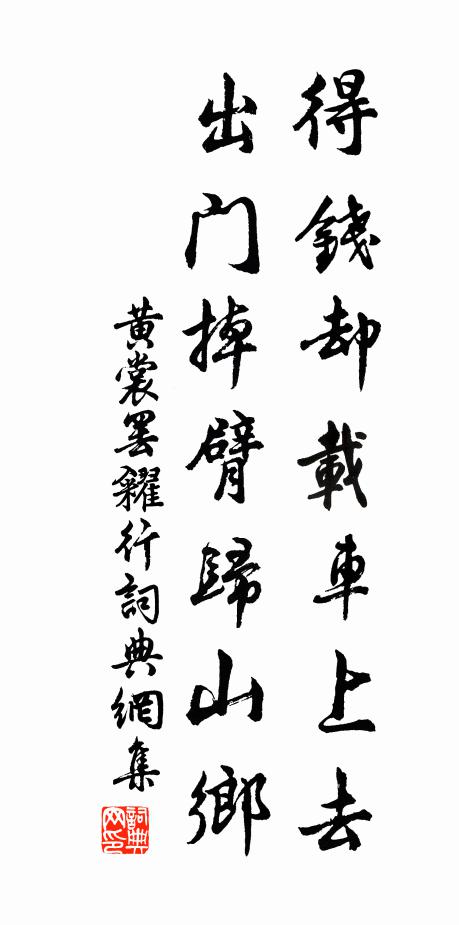 得錢却載車上去
出門掉臂歸山鄉
黃裳罢糴行詞典網集
詞典網印